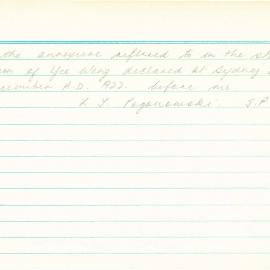 the annexure referred to in the st
of Yee Wing declared at Sydney
cember A.D. 1922. before me
L J Pogonowski. J.P